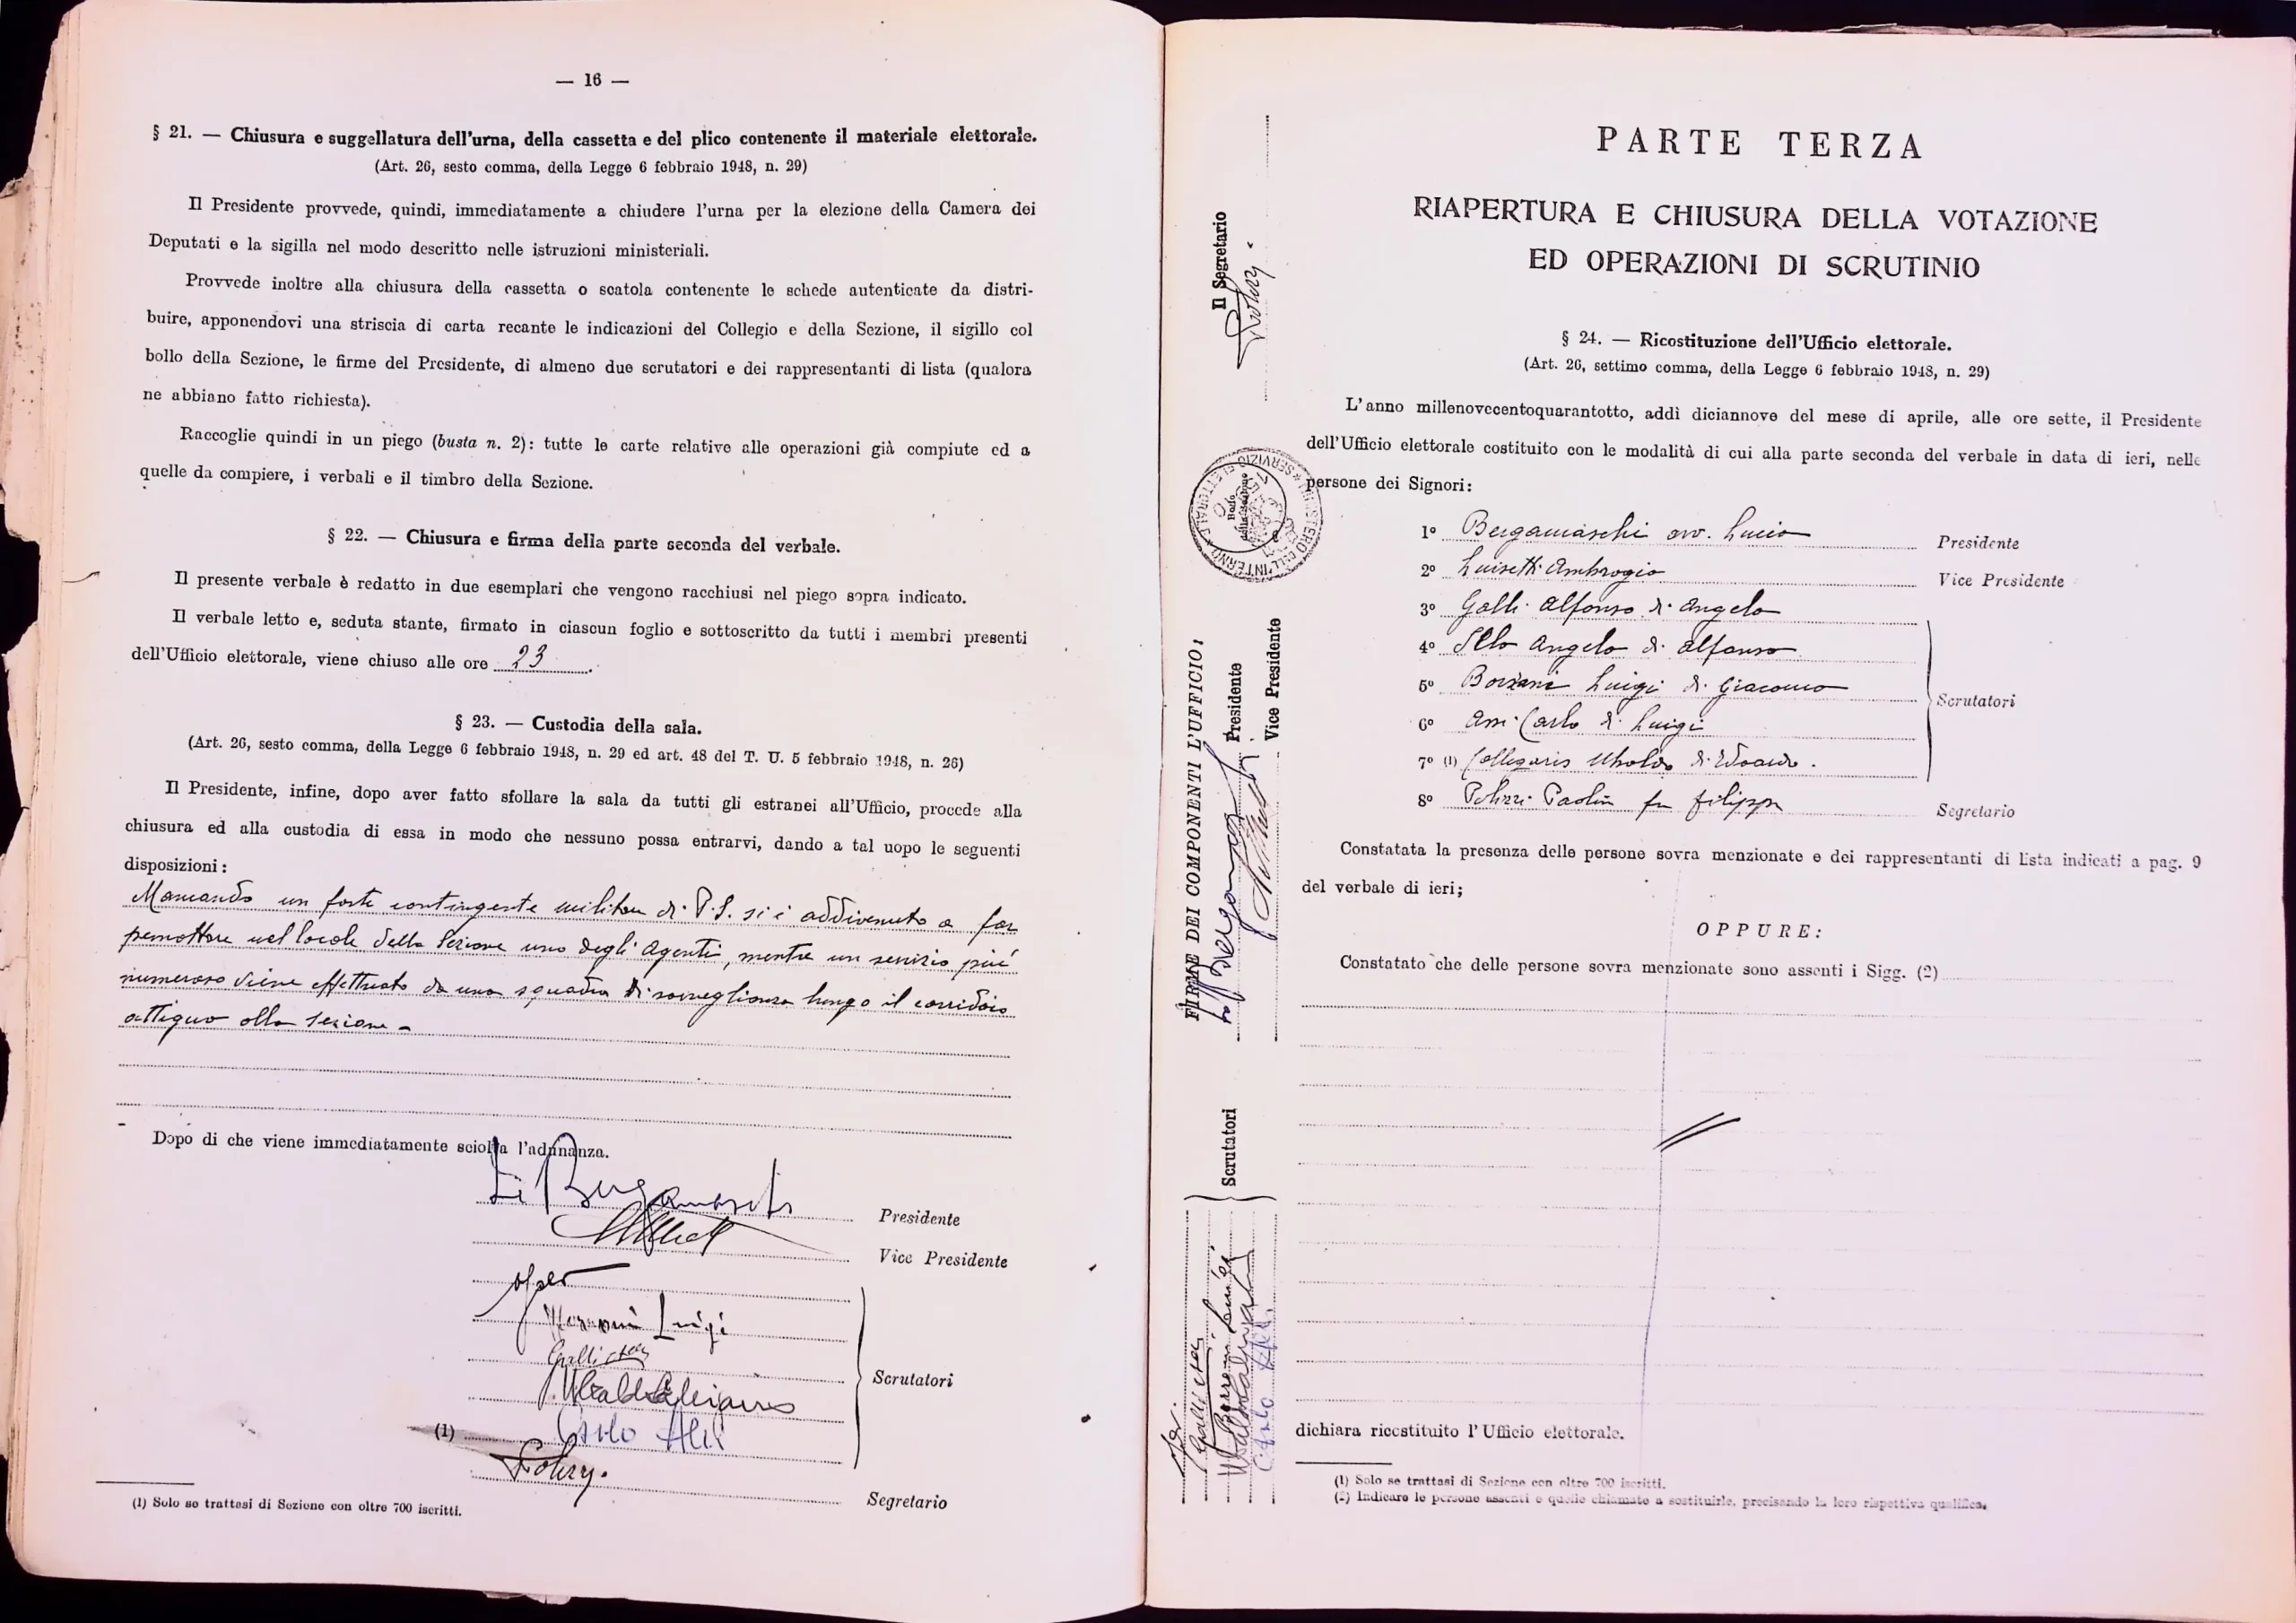 — 16 —
§ 21. — Chiusura e suggellatura dell'urna, della cassetta e del plico contenente il materiale elettorale.
(Art. 26, sesto comma, della Legge 6 febbraio 1948, n. 29)
Il Presidente provvede, quindi, immediatamente a chiudere l'urna per la elezione della Camera dei
Deputati e la sigilla nel modo descritto nelle istruzioni ministeriali.
Provvede inoltre alla chiusura della cassetta o scatola contenente le schede autenticate da distri-
buire, apponendovi una striscia di carta recante le indicazioni del Collegio e della Sezione, il sigillo col
bollo della Sezione, le firme del Presidente, di almeno due scrutatori e dei rappresentanti di lista (qualora
ne abbiano fatto richiesta).
Raccoglie quindi in un piego (busta n. 2): tutte le carte relative alle operazioni già compiute ed a
quelle da compiere, i verbali e il timbro della Sezione.
§ 22. — Chiusura e firma della parte seconda del verbale.
Il presente verbale è redatto in due esemplari che vengono racchiusi nel piego sopra indicato.
Il verbale letto e, seduta stante, firmato in ciascun foglio e sottoscritto da tutti i membri presenti
dell'Ufficio elettorale, viene chiuso alle ore 23 .
§ 23. — Custodia della sala.
(Art. 26, sesto comma, della Legge 6 febbraio 1948, n. 29 ed art. 48 del T. U. 5 febbraio 1948, n. 26)
Il Presidente, infine, dopo aver fatto sfollare la sala da tutti gli estranei all'Ufficio, procede alla
chiusura ed alla custodia di essa in modo che nessuno possa entrarvi, dando a tal uopo le seguenti
disposizioni:
Mancando un forte contingente militare di P.S. si è addivenuto a far
pernottare nel locale della Sezione uno degli Agenti, mentre un servizio più
numeroso viene effettuato da una squadra di sorveglianza lungo il corridoio
attiguo alla Sezione -
Dopo di che viene immediatamente sciolta l'adunanza.
Bergamaschi Presidente
Vice Presidente
Luigi
Galli
Ubaldo Callegaris
Scrutatori
(1) Carlo
Segretario
(1) Solo se trattasi di Sezione con oltre 700 iscritti.
Il Segretario
FIRME DEI COMPONENTI L'UFFICIO:
Presidente
Vice Presidente
Scrutatori
MINISTERO DELL'INTERNO SERVIZIO ELETTORALE
Bollo della Sezione
PARTE TERZA
RIAPERTURA E CHIUSURA DELLA VOTAZIONE
ED OPERAZIONI DI SCRUTINIO
§ 24. — Ricostituzione dell'Ufficio elettorale.
(Art. 26, settimo comma, della Legge 6 febbraio 1948, n. 29)
L'anno millenovecentoquarantotto, addì diciannove del mese di aprile, alle ore sette, il Presidente
dell'Ufficio elettorale costituito con le modalità di cui alla parte seconda del verbale in data di ieri, nelle
persone dei Signori:
1º Bergamaschi avv. Lucio Presidente
2º Luisetti Ambrogio Vice Presidente
3º Galli Alfonso di Angelo
4º Angelo di Alfonso
5º Luigi di Giacomo
Scrutatori
6º Carlo di Luigi
7º (1) Callegaris Ubaldo di Edoardo.
8º Polizzi Paolin fu Filippo Segretario
Constatata la presenza delle persone sovra menzionate e dei rappresentanti di lista indicati a pag. 9
del verbale di ieri;
OPPURE:
Constatato che delle persone sovra menzionate sono assenti i Sigg. (2)
dichiara ricostituito l'Ufficio elettorale.
(1) Solo se trattasi di Sezione con oltre 700 iscritti.
(2) Indicare le persone assenti e quelle chiamate a sostituirle, precisando la loro rispettiva qualifica.